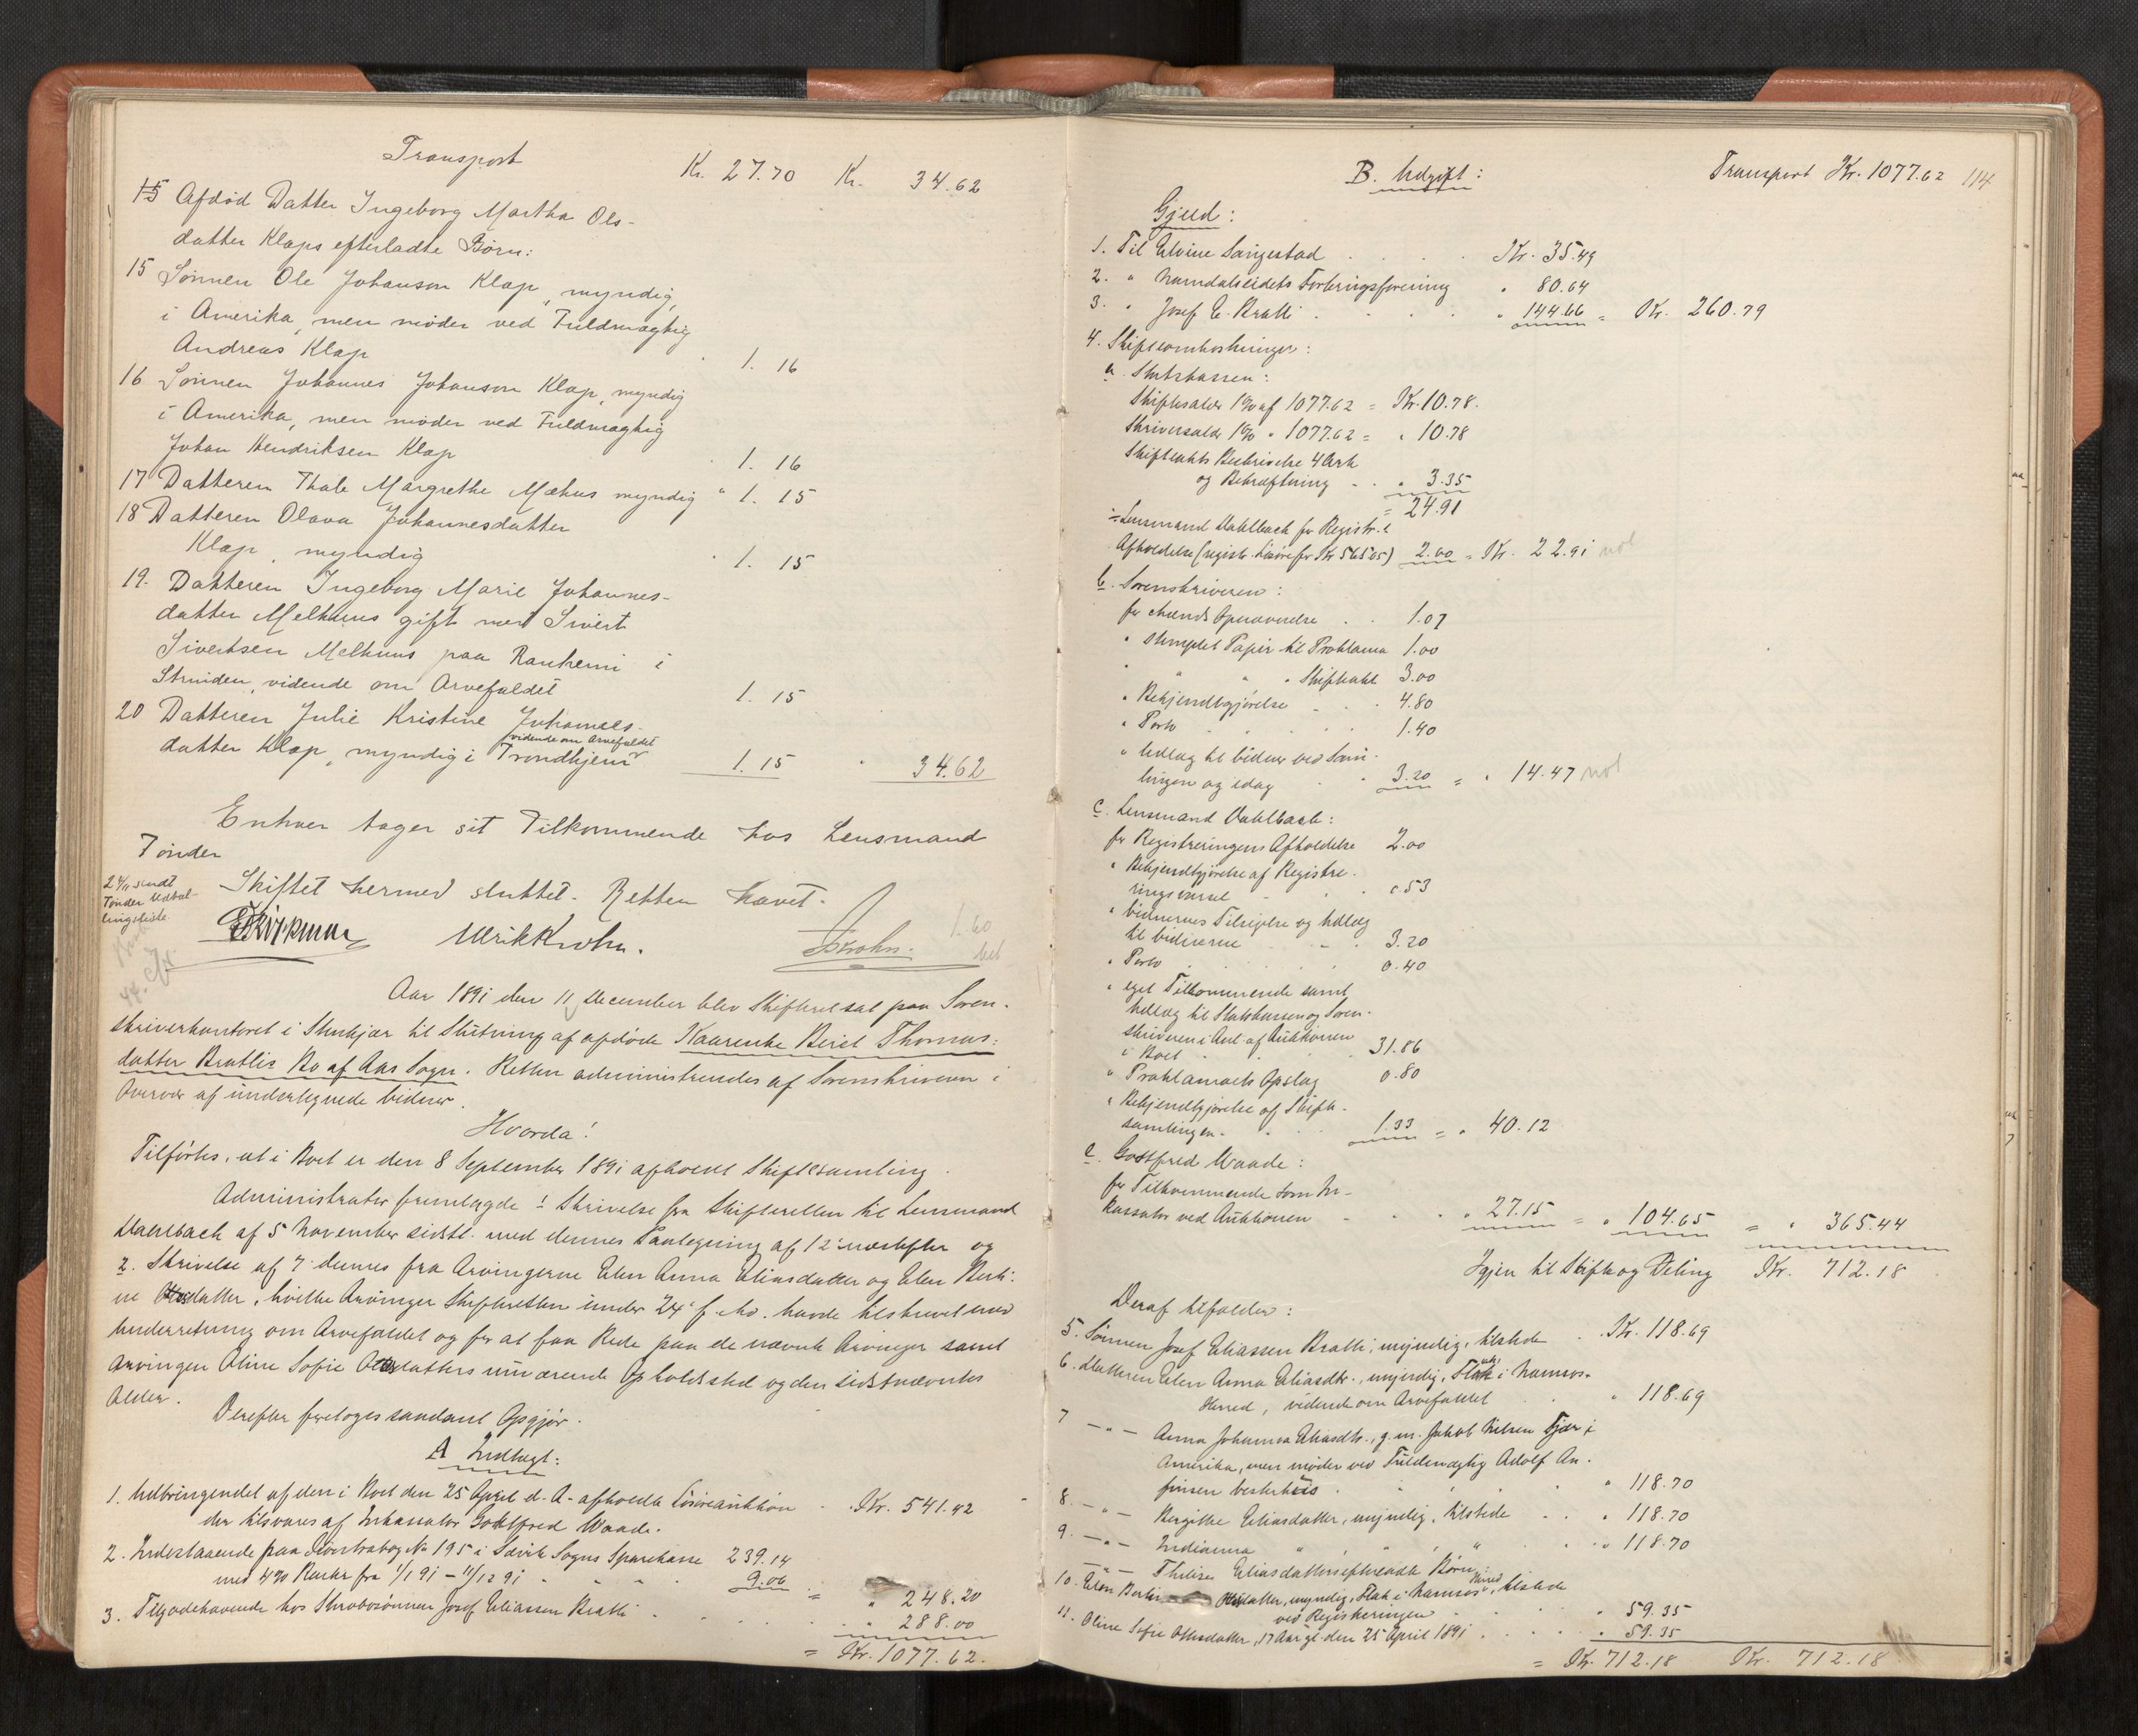 Transport Kr. 27.70 Kr. 34.62
15 Afdød Datter Ingeborg Martha Ols-
datter Klaps efterladte Børn:
15 Sønnen Ole Johanson Klap, myndig,
i Amerika, men møder ved Fuldmægtig
Andreas Klap " 1. 16
16 Sønnen Johannes Johanson Klap, myndig
i Amerika, men møder ved Fuldmægtig
Johan Hendriksen Klap " 1. 16
17 Datteren Thale Margrethe Mæhus myndig " 1. 15
18 Datteren Olava Johannesdatter
Klap, myndig " 1. 15
19. Datteren Ingeborg Marie Johannes-
datter Melhuus gift med Sivert
Sivertsen Melhuus paa Ranheim i
Strinden, vidende om Arvefaldet 1. 15
20 Datteren Julie Kristine Johannes-
vidende om Arvefaldet
datter Klap, myndig i Trondhjem 1. 15 " 34.62
Enhver tager sit Tilkommende hos Lensmand
Tønder
24/11 sendt
Tønder Udbal-
lingsliste.
Skiftet hermed sluttet. Retten hævet.
Ulrik Krohn.
Krohn.
Aar 1891 den 11 December blev Skifteret sat paa Soren-
skriverkontoret i Stenkjær til Slutning af afdøde Kaarenke Beret Thomas-
datter Bratlis Bo af Aas Sogn. Retten administreredes af Sorenskriveren i
Overvær af undertegnede Vidner.
Hvorda!
Tilførtes, at i Boet er den 8 September 1891 afholdt Skiftesamling.
Administrator fremlagde 1 Skrivelse fra Skifteretten til Lensmand
Dahlbach af 5 November sidstl. med dennes Paategning af 12 næstefter og
2. Skrivelse af 7 dennes fra Arvingerne Elen Anna Eliasdatter og Elen Berti-
ne Ottesdatter, hvilke Arvinger Skifteretten under 24 f. Md. havde tilskrevet med
Underretning om Arvefaldet og for at faa Rede paa de nævnte Arvinger samt
Arvingen Oline Sofie Ottesdatters nuværende Opholdsted og den sidstnævntes
Alder.
Derefter foretoges saadant Opgjør.
A Indtægt:
1. Udbringendet af den i Boet den 25 April d. A. afholdte Løsøreauktion . . Kr. 541.42
der tilsvares af Inkassator Gottfred Waade.
2. Indestaaende paa Kontrabog No 195 i Sævik Sogns Sparekasse 239.14
med 4% Renter fra 1/1 91 - 11/12 91 9.06 = " 248.20
3. Tilgodehavende hos Skrabosønnen Josef Eliassen Bratli . . . " 288.00
= Kr. 1077.62.
B. Udgift: Transport Kr. 1077.62 114
Gjæld:
1. Til Elvine Sangestad . . . . Kr. 35.49
2. " Namdalseidets Forbrugsforening " 80.64
3. " Josef E. Bratli . . . . " 144.66 = Kr. 260.79
4. Skifteomkostninger:
a. Statskassen:
Skiftesalær 1% af 1077.62 = Kr. 10.78.
Skriversalær 1% " 1077.62 = " 10.78
Skifteakts Beskrivelse 4 Ark
og Bekræftning - . " 3.35
= 24.91
÷ Lensmand Dahlbach for Registr.s
Afholdelse (registr. Løsøre for Kr 565.05) 2.00 = Kr. 22.91 not
b. Sorenskriveren:
for Mænds Opnævnelse . . 1.07
" stemplet Papir til Proklama 1.00
" " " Skifteakt 3.00
" Bekjendtgjørelse . . . 4.80
" Porto . . . 1.40
" Udlæg til Vidner ved Sam-
lingen og idag . " 3.20 = " 14.47 not
c. Lensmand Dahlbach:
for Registreringens Afholdelse 2.00
" Bekjendtgjørelse af Registre-
ringsvarsel . . . 0.53
" Vidnernes Tilsigelse og Udlæg
til Vidnerne . . . 3.20
" Porto . . . 0.40
" eget Tilkommende samt
Udlæg til Statskassen og Soren-
skriveren i Anl. af Auktionen
i Boet . . . 31.86
" Proklamaets Opslag 0.80
" Bekjendtgjørelse af Skifte-
samlingen . . 1.33 = " 40.12
e. Gottfred Waade:
for Tilkommende som In-
kassator ved Auktionen . . . " 27.15 = " 104.65 = " 365.44
Igjen til Skifte og Deling Kr. 712.18
Deraf tilfalder:
5. Sønnen Josef Eliassen Bratli, myndig, tilstede . . Kr. 118.69
6. Datteren Elen Anna Eliasdtr., myndig, Flak i Namsos-
Herred, vidende om Arvefaldet " 118.69
7 — " — Anna Johanna Eliasdtr., g. m. Jakob Nilsen Tjær i
Amerika, men møder ved Fuldmægtig Adolf An-
finsen Vesterhus . . . " 118.70
8. — " — Bergitte Eliasdatter, myndig, tilstede . . " 118.70
9. — " — Indianna " " " . . " 118.70
— " — Thelise Eliasdatters efterladte Børn:
10. Elen Bertine Ottesdatter, myndig, Flak i Namsos Herred, tilstede
ved Registreringen . . . " 59.35
11. Oline Sofie Ottesdatter, 17 Aar gl. den 25 April 1891 . . . " 59.35
= Kr. 712.18 Kr. 712.18